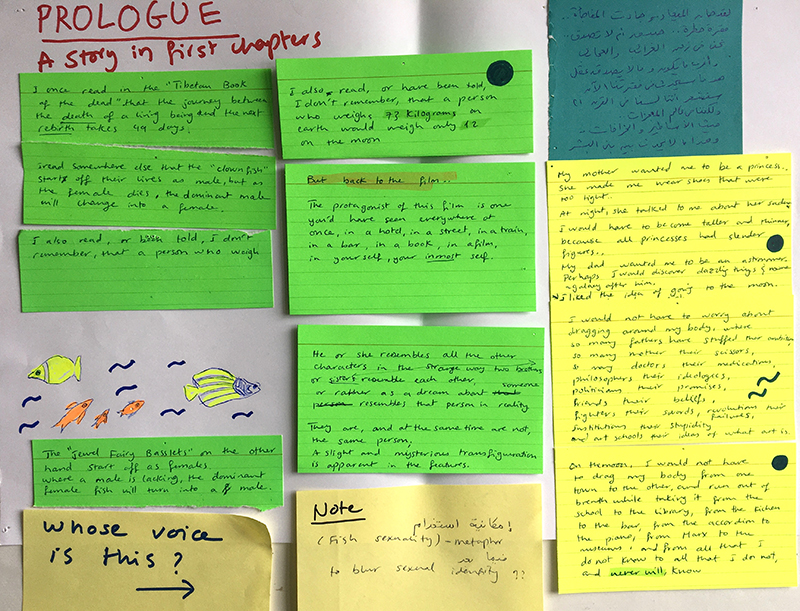 PROLOGUE
A Story in first chapters
I once read in the "Tibetan Book
of the dead" that the journey between
the death of a living being and the next
rebirth takes 49 days.
I read somewhere else that the "clownfish"
starts off their lives as male, but as
the female dies, the dominant male
will change into a female.
I also read, or been told, I don't
remember, that a person who weigh
The "Jewel Fairy Basslets" on the other
hand start off as females.
where a male is lacking, the dominant
female fish will turn into a male.
whose voice
is this?
I also read, or have been told,
I don't remember, that a person
who weighs 73 kilograms on
earth would weigh only 12
on the moon
But back to the film..
The protagonist of this film is one
you'd have seen everywhere at
once, in a hotel, in a street, in a train,
in a bar, in a book, in a film,
in yourself, your inmost self.
He or she resembles all the other
characters in the strange way two brothers
or sisters resemble each other,
or rather as a dream about someone
resembles that person in reality
They are, and at the same time are not,
the same person,
A slight and mysterious transfiguration
is apparent in the features.
Note
استخدام
(Fish sexuality) - metaphor
to blur sexual identity ??
My mother wanted me to be a princess.
She made me wear shoes that were
too tight.
At night, she talked to me about her
I would have to become taller and thinner,
because all princesses had slender
figures.
My dad wanted me to be an astronomer.
Perhaps I would discover dazzling things & name
a galaxy after him.
I liked the idea of going to the moon.
I would not have to worry about
dragging around my body, where
so many fathers have stuffed their ambition,
so many mother their scissors,
so many doctors their medications,
philosophers their ideologies,
politicians their promises,
friends their beliefs,
fighters their swords, revolutions their
failures,
institutions their stupidity,
and art schools their ideas of what art is.
On the moon, I would not have
to drag my body from one
town to the other, and run out of
breath while taking it from the
school to the library, from the kitchen
to the bar, from the accordion to
the piano, from Marx to the
museums, and from all that I
do not know to all that I do not,
and never will, know